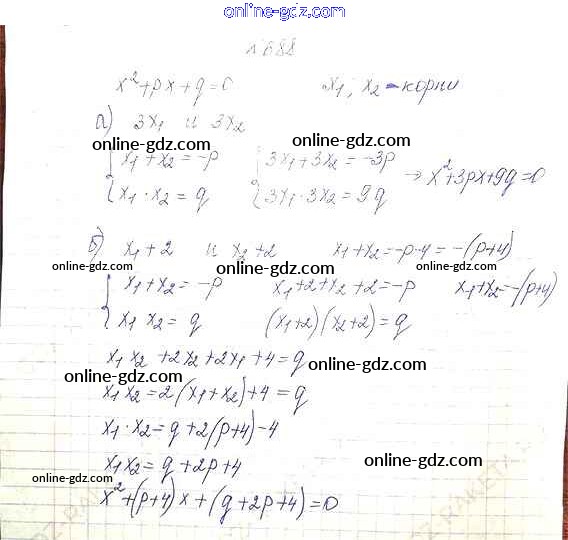 online-gdz.com
№688
x² + px + q = 0   x₁, x₂ - корни
а) 3x₁ и 3x₂
online-gdz.com online-gdz.com
{ x₁ + x₂ = -p   { 3x₁ + 3x₂ = -3p
x₁ · x₂ = q   3x₁ · 3x₂ = 9q   → x² + 3px + 9q = 0
online-gdz.com online-gdz.com
б) x₁ + 2 и x₂ + 2   x₁ + x₂ = -p - 4 = -(p+4)
online-gdz.com online-gdz.com online-gdz.com
{ x₁ + x₂ = -p   x₁ + 2 + x₂ + 2 = -p   x₁ + x₂ = -(p+4)
x₁ x₂ = q   (x₁+2)(x₂+2) = q
x₁ x₂ + 2x₂ + 2x₁ + 4 = q
online-gdz.com online-gdz.com
x₁ x₂ = 2(x₁+x₂) + 4 = q
x₁ · x₂ = q + 2(p+4) - 4
x₁ x₂ = q + 2p + 4
online-gdz.com online-gdz.com
x² + (p+4)x + (q + 2p + 4) = 0
online-gdz.com online-gdz.com